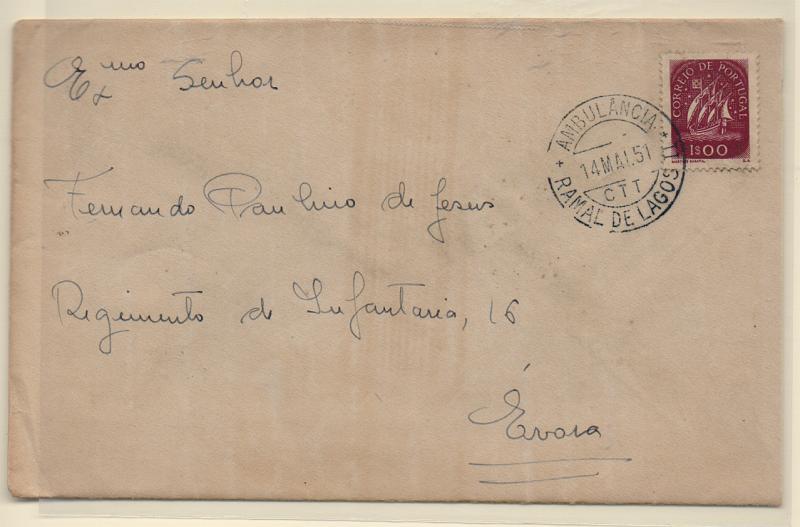 Exmo Senhor
CORREIO DE PORTUGAL
1$00
AMBULÂNCIA
14 MAI. 51
CTT
RAMAL DE LAGOS
Fernando Paulino de Jesus
Regimento de Infantaria, 16
Évora